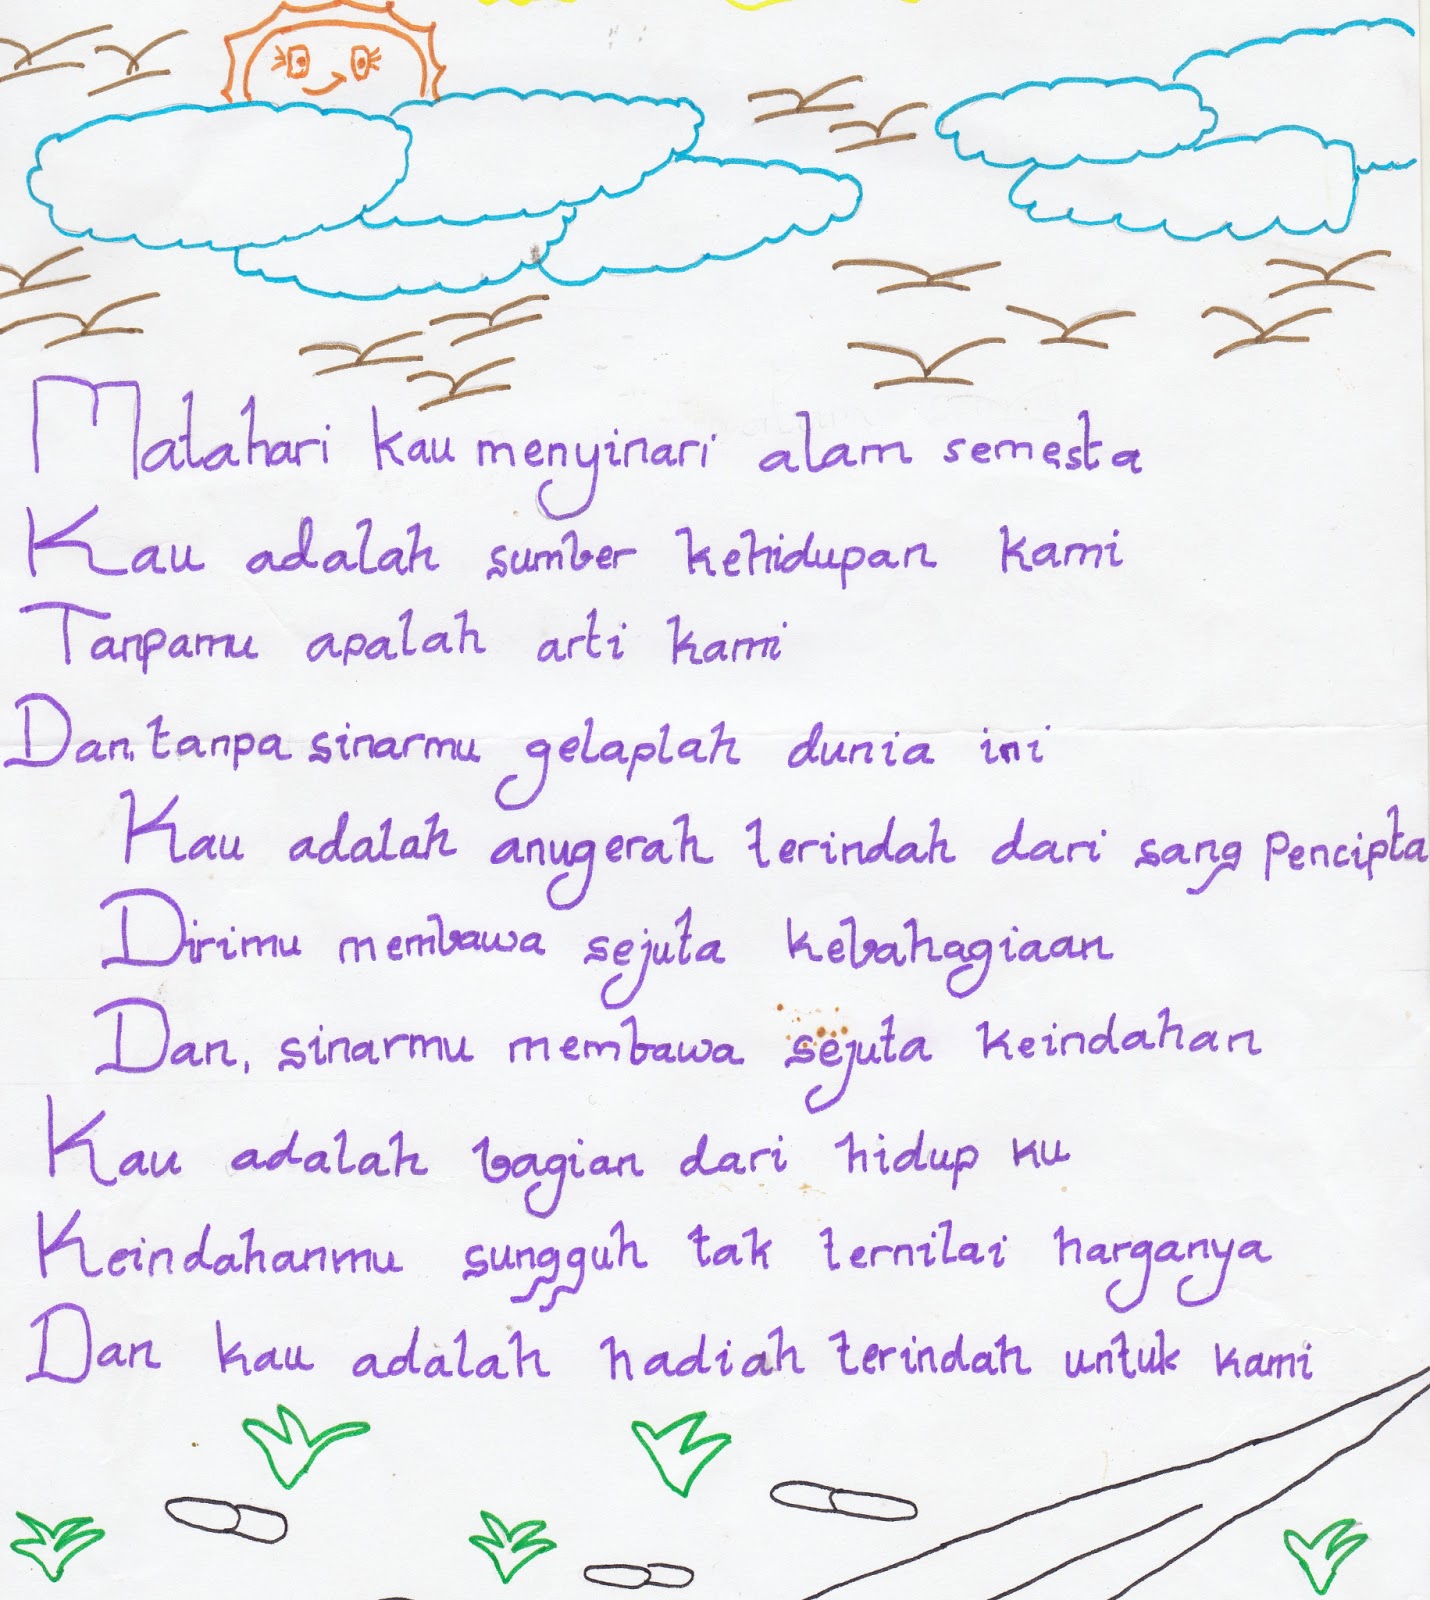 Matahari kau menyinari alam semesta
Kau adalah sumber kehidupan kami
Tanpamu apalah arti kami
Dan, tanpa sinarmu gelaplah dunia ini
Kau adalah anugerah terindah dari sang pencipta
Dirimu membawa sejuta kebahagiaan
Dan, sinarmu membawa sejuta keindahan
Kau adalah bagian dari hidup ku
Keindahanmu sungguh tak ternilai harganya
Dan kau adalah hadiah terindah untuk kami